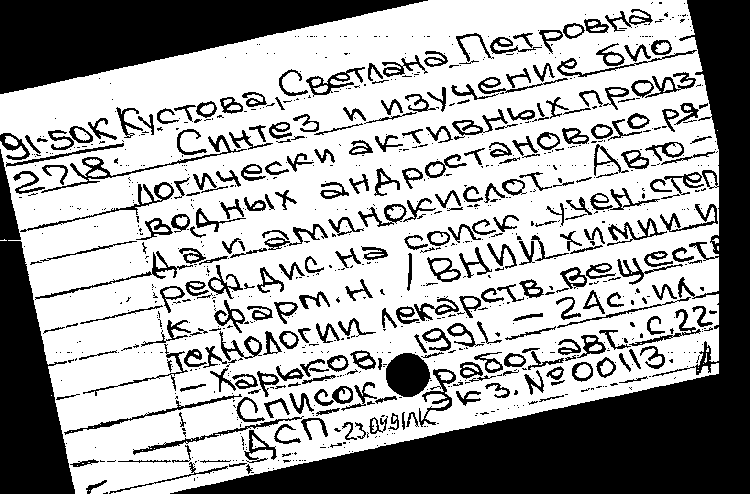 91-50К Кустова, Светлана Петровна.
2718. Синтез и изучение био-
логически активных произ-
водных андростанового ря-
да и аминокислот: Авто-
реф. дис. на соиск. учен. степ
к. фарм. н. / ВНИИ химии и
технологии лекарств. веществ
- Харьков, 1991. - 24с.: ил.
Список работ авт.: с. 22-
ДСП. 23.09.91ЛК Экз. №00113.